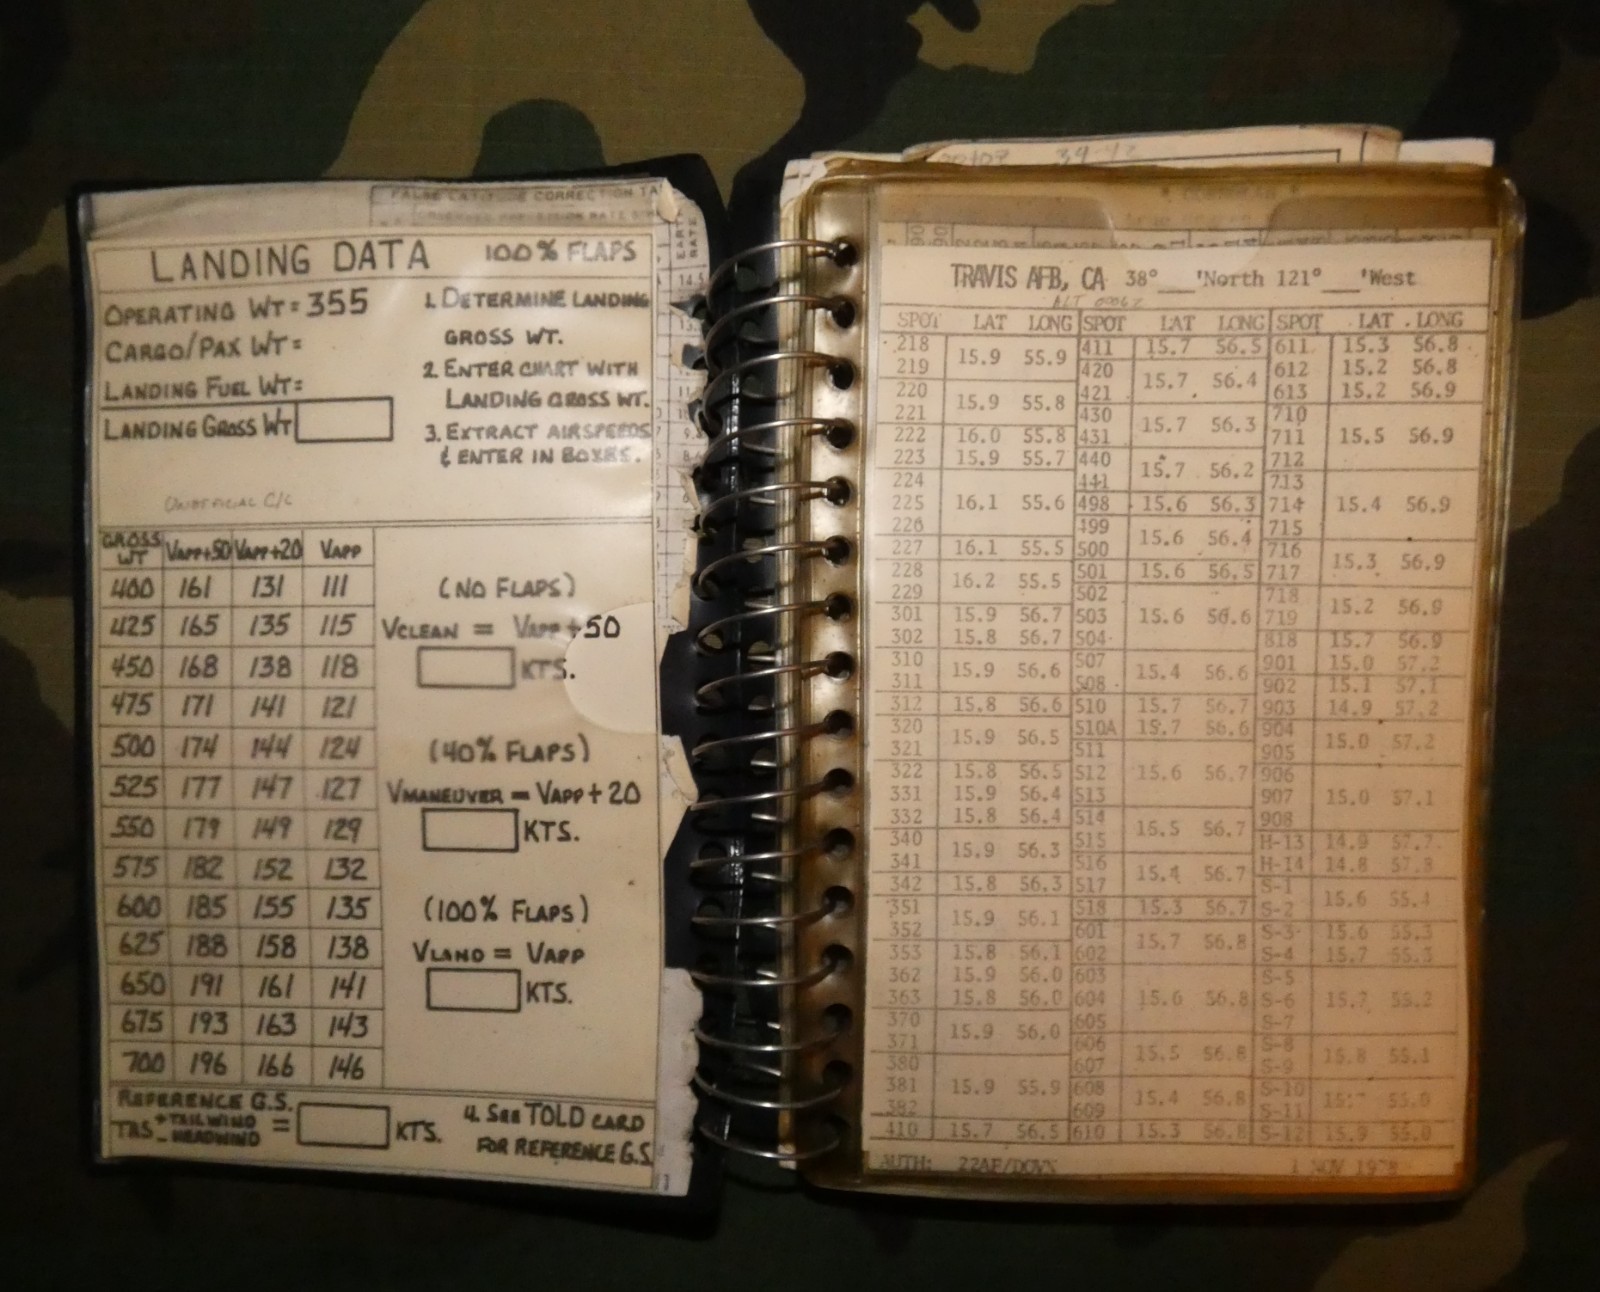 FALSE LATITUDE CORRECTION TA
LANDING DATA 100% FLAPS
OPERATING WT = 355
CARGO/PAX WT =
LANDING FUEL WT =
LANDING GROSS WT
1. DETERMINE LANDING
GROSS WT.
2. ENTER CHART WITH
LANDING GROSS WT.
3. EXTRACT AIRSPEEDS
& ENTER IN BOXES.
UNOFFICIAL C/L
GROSS WT VAPP+50 VAPP+20 VAPP
400 161 131 111
425 165 135 115
450 168 138 118
475 171 141 121
500 174 144 124
525 177 147 127
550 179 149 129
575 182 152 132
600 185 155 135
625 188 158 138
650 191 161 141
675 193 163 143
700 196 166 146
(NO FLAPS)
VCLEAN = VAPP+50
KTS.
(40% FLAPS)
VMANEUVER = VAPP+20
KTS.
(100% FLAPS)
VLAND = VAPP
KTS.
REFERENCE G.S.
TAS +TAILWIND = KTS.
-HEADWIND
4. SEE TOLD CARD
FOR REFERENCE G.S.
39-42
TRAVIS AFB, CA 38°___'North 121°___'West
ALT 00062
SPOT LAT LONG SPOT LAT LONG SPOT LAT LONG
218 15.9 55.9
219
220 15.9 55.8
221
222 16.0 55.8
223 15.9 55.7
224
225 16.1 55.6
226
227 16.1 55.5
228 16.2 55.5
229
301 15.9 56.7
302 15.8 56.7
310 15.9 56.6
311
312 15.8 56.6
320 15.9 56.5
321
322 15.8 56.5
331 15.9 56.4
332 15.8 56.4
340 15.9 56.3
341
342 15.8 56.3
351 15.9 56.1
352
353 15.8 56.1
362 15.9 56.0
363 15.8 56.0
370 15.9 56.0
371
380
381 15.9 55.9
382
410 15.7 56.5
411 15.7 56.5
420 15.7 56.4
421
430 15.7 56.3
431
440 15.7 56.2
441
498 15.6 56.3
499 15.6 56.4
500
501 15.6 56.5
502
503 15.6 56.6
504
507 15.4 56.6
508
510 15.7 56.7
510A 15.7 56.6
511
512 15.6 56.7
513
514 15.5 56.7
515
516 15.4 56.7
517
518 15.3 56.7
601 15.7 56.8
602
603
604 15.6 56.8
605
606 15.5 56.8
607
608 15.4 56.8
609
610 15.3 56.8
611 15.3 56.8
612 15.2 56.8
613 15.2 56.9
710
711 15.5 56.9
712
713
714 15.4 56.9
715
716 15.3 56.9
717
718 15.2 56.9
719
818 15.7 56.9
901 15.0 57.2
902 15.1 57.1
903 14.9 57.2
904 15.0 57.2
905
906
907 15.0 57.1
908
H-13 14.9 57.7
H-14 14.8 57.8
S-1 15.6 55.4
S-2
S-3 15.6 55.3
S-4 15.7 55.3
S-5
S-6 15.7 55.2
S-7
S-8 15.8 55.1
S-9
S-10 55.0
S-11
S-12 15.9 55.0
AUTH: 22AF/DOVN 1 NOV 1978